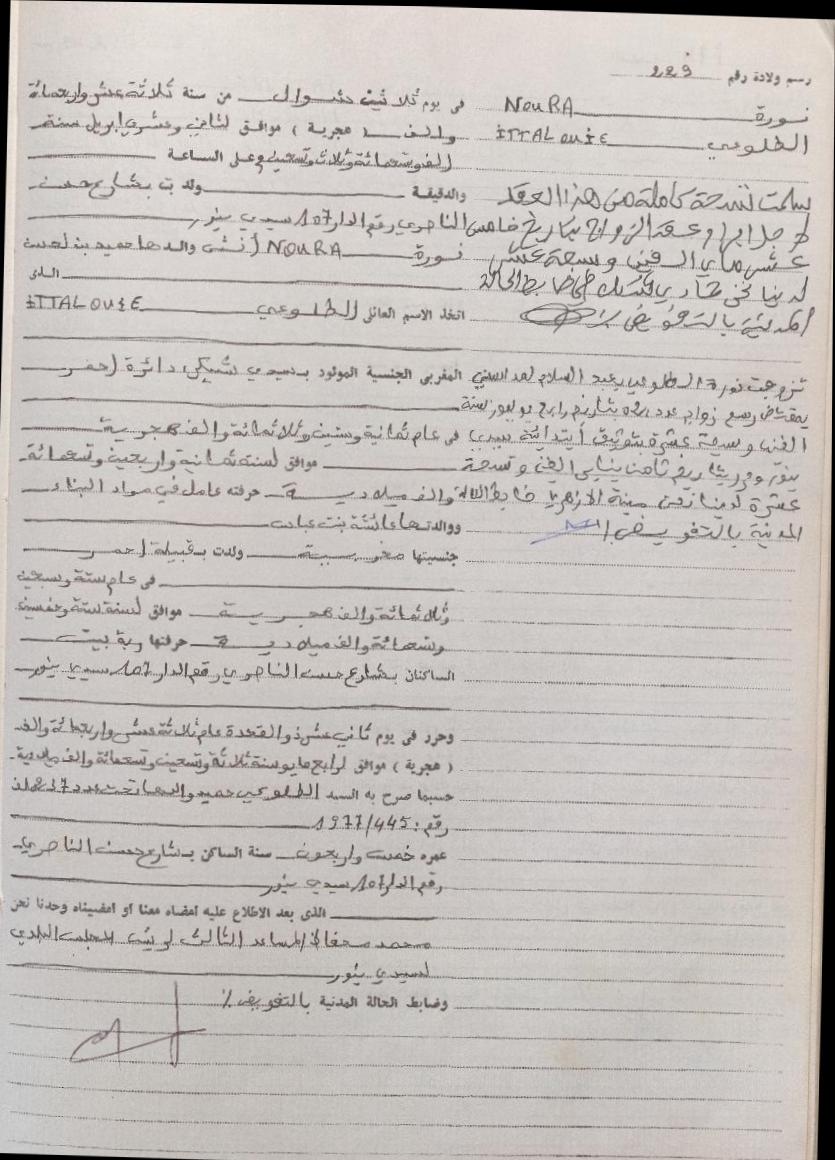 رسم ولادة رقم 229
نورة NOURA
الطلوعي ITTALOUIE
سلمت نسخة كاملة من هذا العقد
لأجل ابرام عقد الزواج بتاريخ خامس
عشر ماي الفين وسبعة عشر
لدينا نحن ضابط الحالة
المدنية بالتفويض
تزوجت نورة الطلوعي بعبد السلام
بمقتضى رسم زواج عدد بتاريخ رابع يوليوز سنة
الفين وسبعة عشرة بتوثيق ابتدائية سيدي
بنور وحرر بتاريخ ثامن يناير الفين وتسعة
عشرة لدينا نحن ضابط الحالة
المدنية بالتفويض
فى يوم ثلاثين شوال من سنة ثلاثة عشر واربعمائة
والف (هجرية) موافق لثاني وعشري ابريل سنة
الف وتسعمائة وثلاث وتسعين على الساعة
والدقيقة ولدت بشارع حسن
الناصري رقم الدار 107 سيدي بنور
نورة NOURA أنثى والدها حميد بن لحسن
الذى
اتخذ الاسم العائلى الطلوعي ITTALOUIE
المغربى الجنسية المولود بسيدي شيكر دائرة احمر
فى عام ثمانية وستين وثلاثمائة والف هجرية
موافق لسنة ثمانية واربعين وتسعمائة
والف ميلادية حرفته عامل في مواد البناء
ووالدتها عائشة بنت عباس
جنسيتها مغربية ولدت بقبيلة احمر
فى عام ستة وسبعين
وثلاثمائة والف هجرية موافق لسنة ستة وخمسين
وتسعمائة والف ميلادية حرفتها ربة بيت
الساكنان بشارع حسن الناصري رقم الدار 107 سيدي بنور
وحرر فى يوم ثاني عشر ذو القعدة عام ثلاثة عشر واربعمائة والف
(هجرية) موافق لرابع مايو سنة ثلاثة وتسعين وتسعمائة والف ميلادية
حسبما صرح به السيد الطلوعي حميد والدها تحت عدد 237 ملف
رقم: 1977/445
عمره خمس واربعون سنة الساكن بشارع حسن الناصري
رقم الدار 107 سيدي بنور
الذى بعد الاطلاع عليه امضاه معنا او امضيناه وحدنا نحن
محمد المساعد الثالث لرئيس المجلس البلدي
لسيدي بنور
وضابط الحالة المدنية بالتفويض